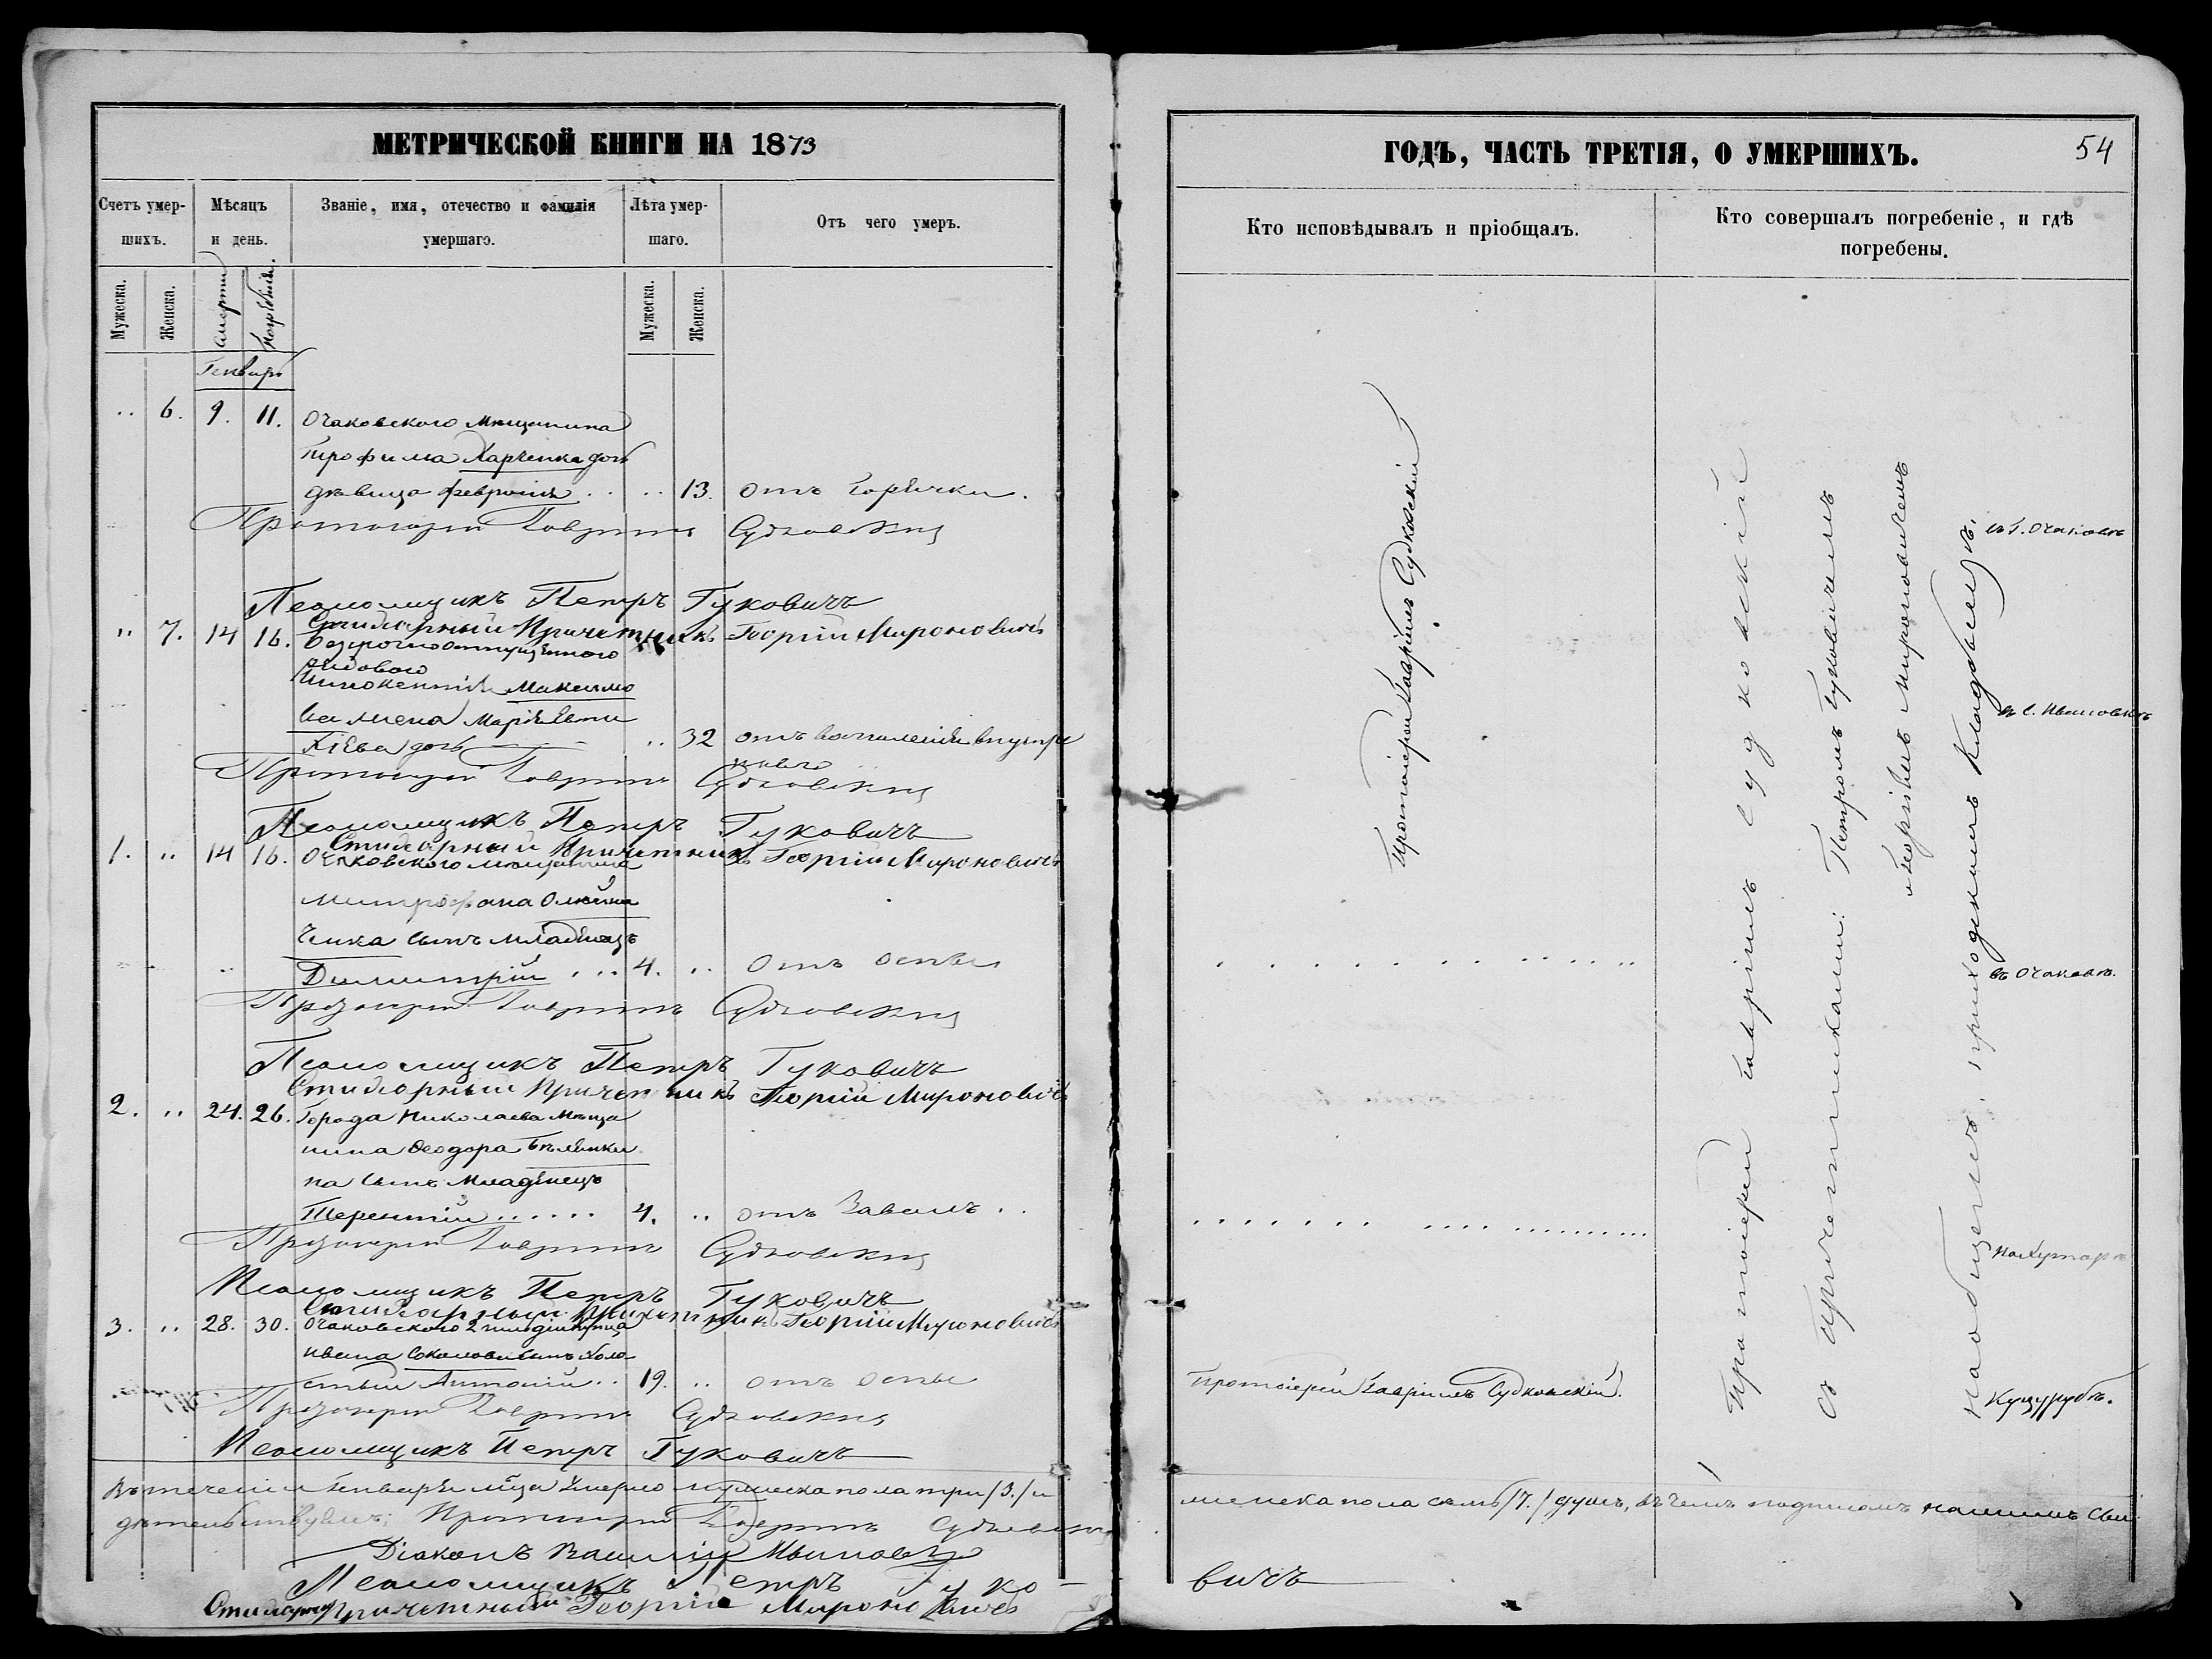 МЕТРИЧЕСКОЙ КНИГИ НА 1873
Счетъ умер-
шихъ.
Мѣсяцъ
и день.
Званіе, имя, отечество и фамилія
умершаго.
Лѣта умер-
шаго.
Отъ чего умеръ.
Мужеска.
Женска.
Смерти
Погребенія.
Мужеска.
Женска.
Генварь
6. 9. 11. Очаковскаго Мѣщанина
Трофима Харченка дочь
дѣвица Февронія 13. отъ горячки.
Протоіерей Гавріилъ Судковскій
Псаломщикъ Петръ Гуковичъ
Стихарный Причетникъ Георгій Мироновичъ
7. 14 16. Безсрочноотпущенного
рядового
Максимо
ва жена Марія
дочь 32 отъ воспаленія внутре
нняго
Протоіерей Гавріилъ Судковскій
Псаломщикъ Петръ Гуковичъ
Стихарный Причетникъ Георгій Мироновичъ
1. 14 16. Очаковского мѣщанина
Митрофана Олейни
чика сынъ младенецъ
Димитрій 4. отъ оспы
Протоіерей Гавріилъ Судковскій
Псаломщикъ Петръ Гуковичъ
Стихарный Причетникъ Георгій Мироновичъ
2. 24. 26. Города Николаева Мѣща
нина Ѳеодора
на сынъ младенецъ
Терентій 4. отъ
Протоіерей Гавріилъ Судковскій
Псаломщикъ Петръ Гуковичъ
Стихарный Причетникъ Георгій Мироновичъ
3. 28. 30. Очаковского 2 гильдіи купца
Ивана Соколова сынъ холо
стый Антоній 19. отъ оспы
Протоіерей Гавріилъ Судковскій
Псаломщикъ Петръ Гуковичъ
Въ теченіи Генваря м-ца умерло мужеска пола три /3./ и
дѣтельствуемъ: Протоіерей Гавріилъ Судковскій
Діаконъ Василій Ивановъ
Псаломщикъ Петръ Гуко-
Стихарный Причетникъ Георгій Мироновичъ
ГОДЪ, ЧАСТЬ ТРЕТІЯ, О УМЕРШИХЪ.
54
Кто исповѣдывалъ и пріобщалъ.
Кто совершалъ погребеніе, и гдѣ
погребены.
Протоіерей Гавріилъ Судковскій
Протоіерей Гавріилъ Судковскій.
Протоіерей Гавріилъ Судковскій
Со причетниками: Петромъ Гуковичемъ
и Георгіемъ Мироновичемъ
на общемъ приходскомъ кладбищѣ.
въ г. Очаковѣ
въ с. Ивановкѣ
въ Очаковѣ.
на хуторѣ
Куцурубѣ.
женска пола семь /7./ душъ, въ чемъ подписомъ нашимъ сви
вичъ